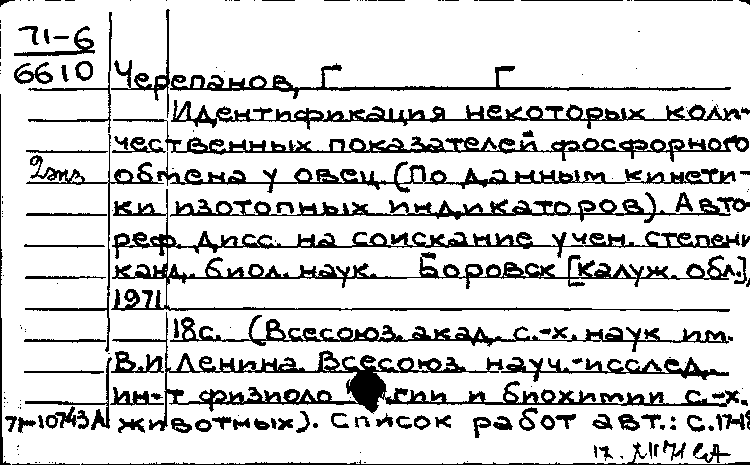 71-6
6610
Черепанов, Г Г
Идентификация некоторых коли-
чественных показателей фосфорного
2 экз
обмена у овец. (По данным кинети-
ки изотопных индикаторов). Авто-
реф. дисс. на соискание учен. степени
канд. биол. наук. Боровск [Калуж. обл.],
1971.
18с. (Всесоюз. акад. с.-х. наук им.
В.И. Ленина. Всесоюз. науч.-исслед.
ин-т физиологии и биохимии с.-х.
71-10743А животных). Список работ авт.: с.17-18